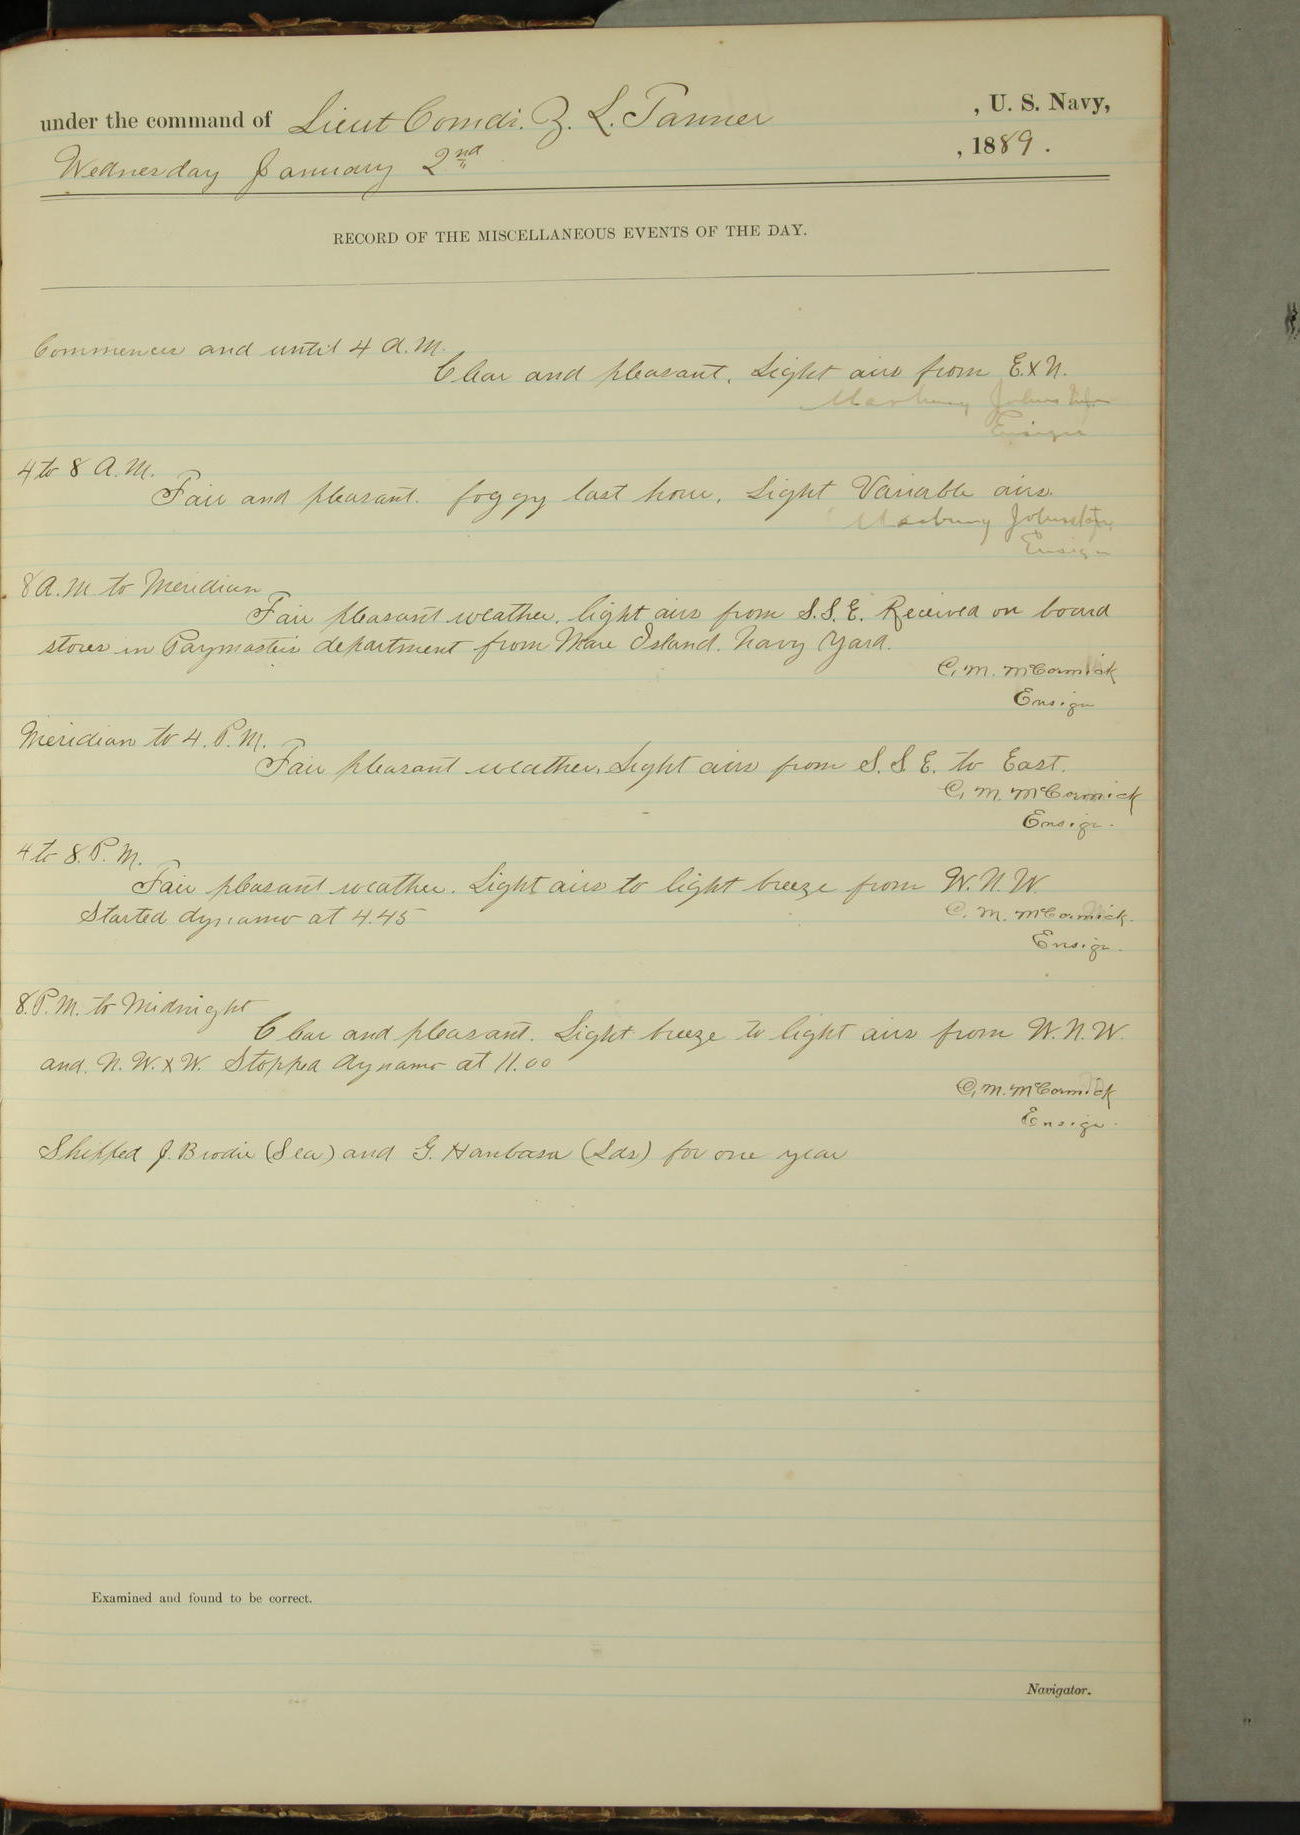 under the command of Lieut Comdr. Z. L. Tanner , U. S. Navy,
Wednesday January 2nd , 1889.
RECORD OF THE MISCELLANEOUS EVENTS OF THE DAY.
Commences and until 4 A.M.
Clear and pleasant. Light airs from E.x N.
Marbury Johnston
Ensign
4 to 8 A.M.
Fair and pleasant. foggy last hour. Light Variable airs.
Marbury Johnston
Ensign
8 A.M to Meridian
Fair pleasant weather. light airs from S.S.E. Received on board
stores in Paymasters department from Mare Island. Navy Yard.
C. M. McCormick
Ensign
Meridian to 4. P.M.
Fair pleasant weather, Light airs from S. S E. to East.
C. M. McCormick
Ensign.
4 to 8. P. M.
Fair pleasant weather. Light airs to light breeze from W. N. W.
Started dynamo at 4.45
C. M. McCormick.
Ensign.
8. P. M. to Midnight
Clear and pleasant. Light breeze to light airs from W. N. W.
and. N. W. x W. Stopped dynamo at 11.00
C. M. McCormick
Ensign.
Shipped J. Brodie (Sea) and G. (Lds) for one year
Examined and found to be correct.
Navigator.